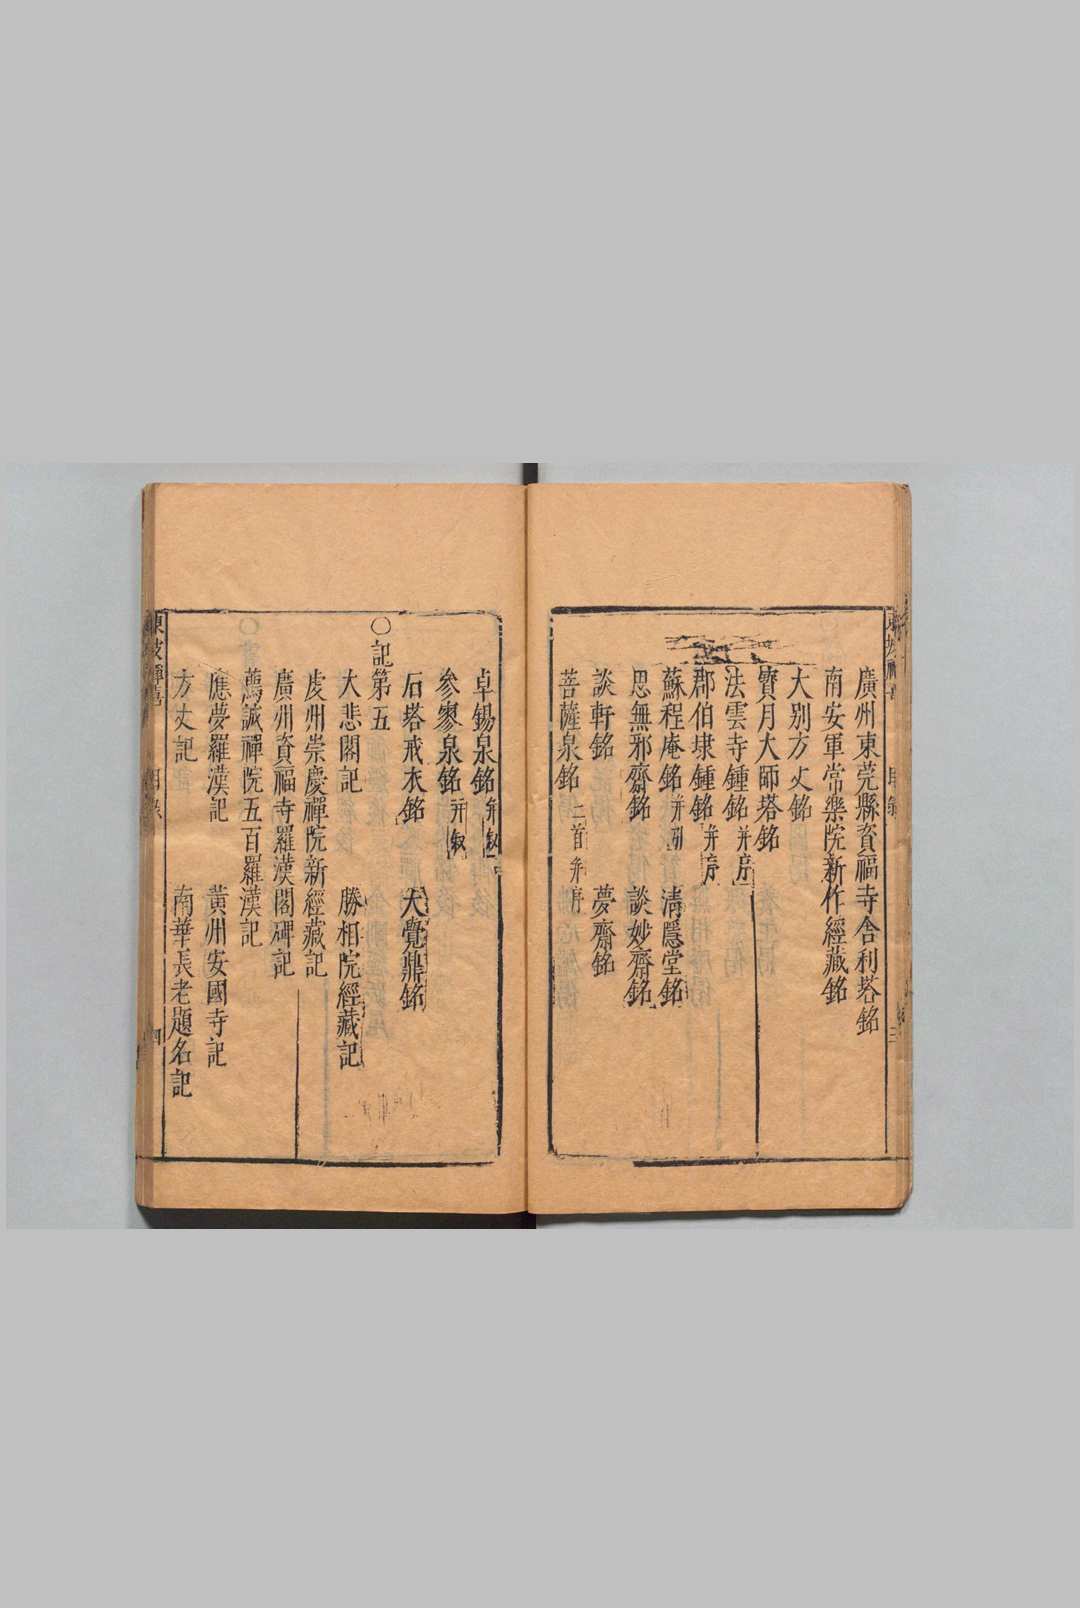 廣州東莞縣資福寺舍利塔銘
南安軍常樂院新作經藏銘
大別方丈銘
寶月大師塔銘
法雲寺鍾銘并序
郡伯埭鍾銘并序
蘇程庵銘并引 清隱堂銘
思無邪齋銘 談妙齋銘
談軒銘 夢齋銘
菩薩泉銘二首并序
卓錫泉銘并敘
參寥泉銘并敘
石塔戒衣銘 大覺鼎銘
○記第五
大悲閣記 勝相院經藏記
虔州崇慶禪院新經藏記
廣州資福寺羅漢閣碑記
薦誠禪院五百羅漢記
應夢羅漢記 黃州安國寺記
方丈記 南華長老題名記
東坡禪喜 目錄 四